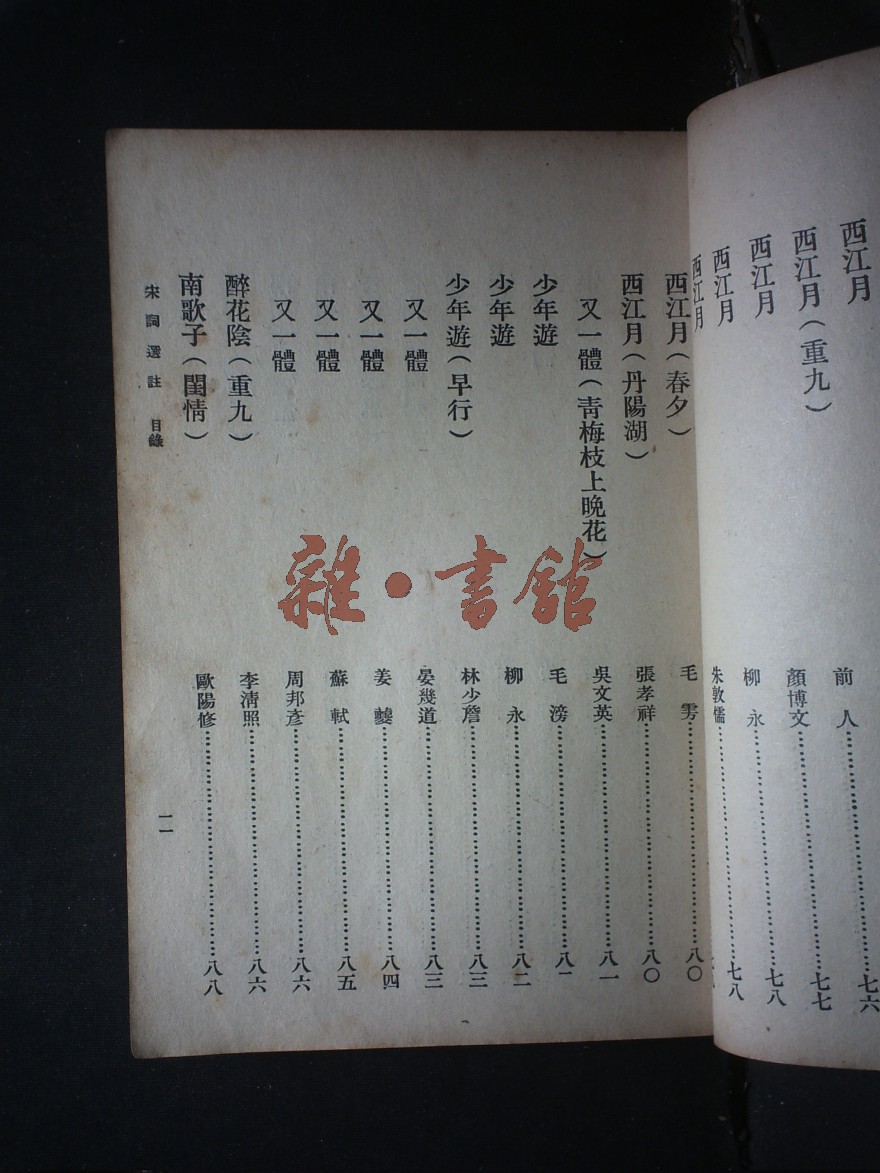 西江月 前人…………七六
西江月(重九) 顏博文…………七七
西江月 柳永…………七八
西江月 朱敦儒…………七八
西江月
西江月(春夕) 毛雱…………八〇
西江月(丹陽湖) 張孝祥…………八〇
又一體(青梅枝上晚花) 吳文英…………八一
少年遊 毛滂…………八一
少年遊 柳永…………八二
少年遊(早行) 林少詹…………八三
又一體 晏幾道…………八三
又一體 姜夔…………八四
又一體 蘇軾…………八五
又一體 周邦彥…………八六
醉花陰(重九) 李清照…………八六
南歌子(閨情) 歐陽修…………八八
宋詞選註 目錄 一一
雜·書館